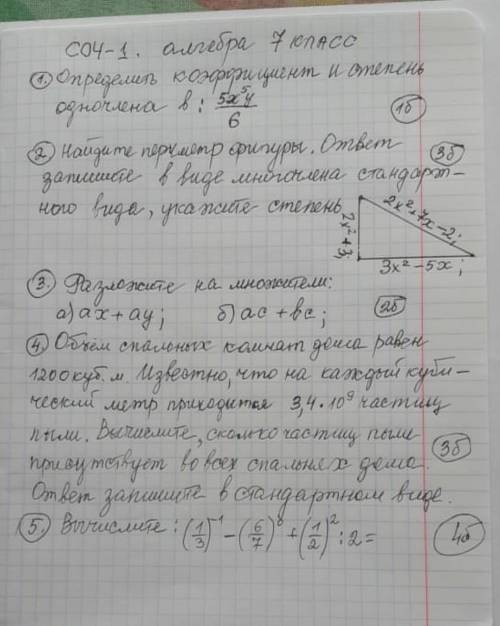 СОЧ-1. алгебра 7 класс
① Определить коэффициент и степень
одночлена в: 5x⁵y/6 1б
② Найдите периметр фигуры. Ответ 3б
запишите в виде многочлена стандарт-
ного вида, укажите степень
2x²+3; 2x²+7x-2; 3x²-5x;
③. Разложите на множители:
а) ax+ay; б) ac+bc; 2б
④ Объём спальных комнат дома равен
1200 куб. м. Известно, что на каждый куби-
ческий метр приходится 3,4·10⁹ частиц
пыли. Вычислите, сколько частиц пыли
присутствует во всех спальнях дома. 3б
Ответ запишите в стандартном виде.
⑤ Вычислите: (1/3)⁻¹-(6/7)⁰+(1/2)²:2= 4б